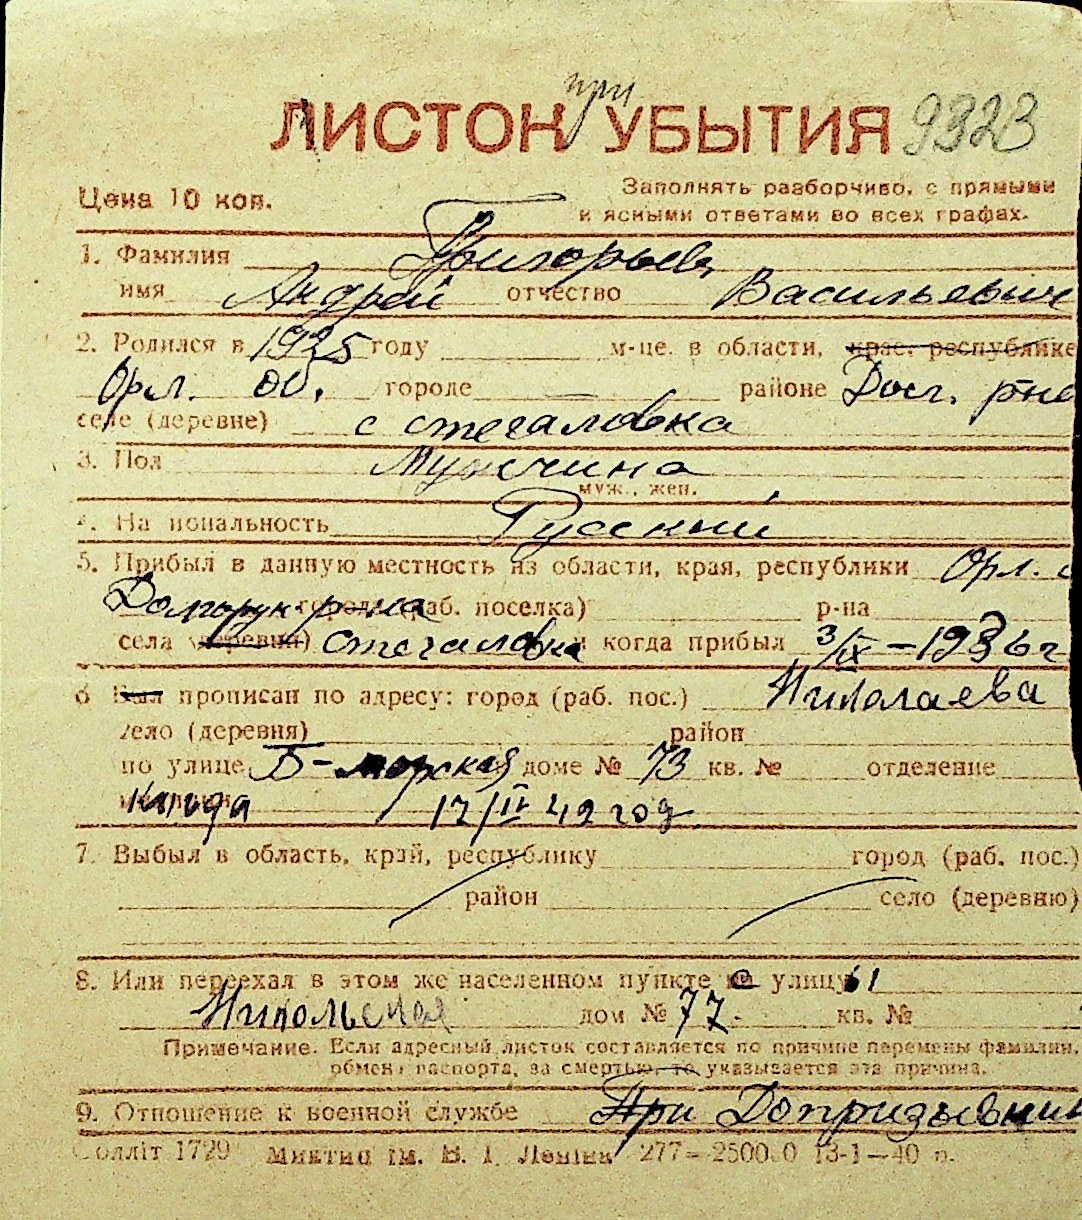 при
ЛИСТОК УБЫТИЯ 9323
Цена 10 коп. Заполнять разборчиво, с прямыми
и ясными ответами во всех графах.
1. Фамилия Григорьев
имя Андрей отчество Васильевич
2. Родился в 1925 году м-це. в области, крае, республике
Орл. об. городе — районе Долг. р-не
селе (деревне) с Стегаловка
3. Пол Мужчина
муж., жен.
4. Национальность Русский
5. Прибыл в данную местность из области, края, республики Орл. о
Долгорук. р-на города (раб. поселка) р-на
села (деревни) Стегаловка и когда прибыл 3/IX – 1936 г
6 Был прописан по адресу: город (раб. пос.) Николаева
село (деревня) район
по улице Б-морская доме № 73 кв. № отделение
милиции 17/IV 42 год
7. Выбыл в область, край, республику город (раб. пос.)
район село (деревню)
8. Или переехал в этом же населенном пункте с улицы
Никольская дом № 77. кв. №
Примечание. Если адресный листок составляется по причине перемены фамилии,
обмена паспорта, за смертью, то указывается эта причина.
9. Отношение к военной службе При Допризывник
Солліт 1729 Миктип ім. В. І. Леніна 277–2500.0 13-1–40 п.